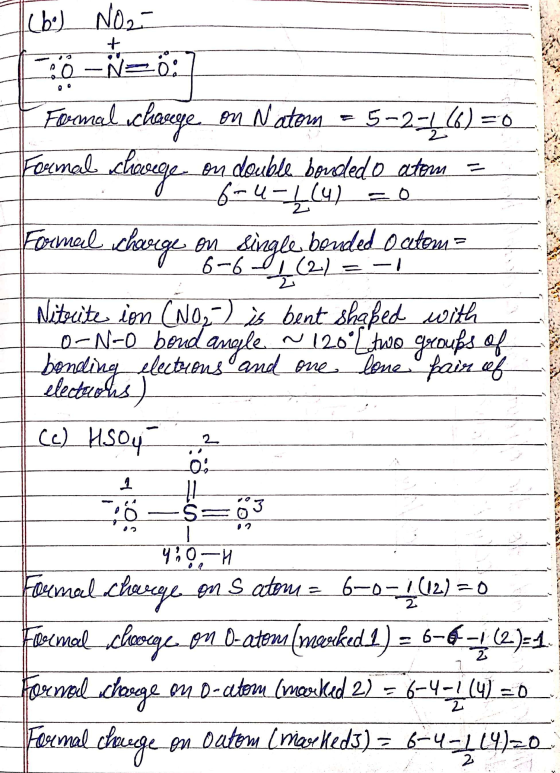 (b.) NO2⁻
+
[⁻:Ö — N = Ö:]
Formal charge on N atom = 5-2-1/2(6) = 0
Formal charge on double bonded O atom =
6-4-1/2(4) = 0
Formal charge on single bonded O atom =
6-6-1/2(2) = -1
Nitrite ion (NO2⁻) is bent shaped with
O-N-O bond angle ~ 120° [two groups of
bonding electrons and one lone pair of
electrons)
(c) HSO4⁻
2
:O:
||
1
⁻:O — S = O 3
|
4:O — H
Formal charge on S atom = 6-0-1/2(12) = 0
Formal charge on O-atom (marked 1) = 6-6-1/2(2)=-1
Formal charge on O-atom (marked 2) = 6-4-1/2(4) = 0
Formal charge on O atom (marked 3) = 6-4-1/2(4)=0